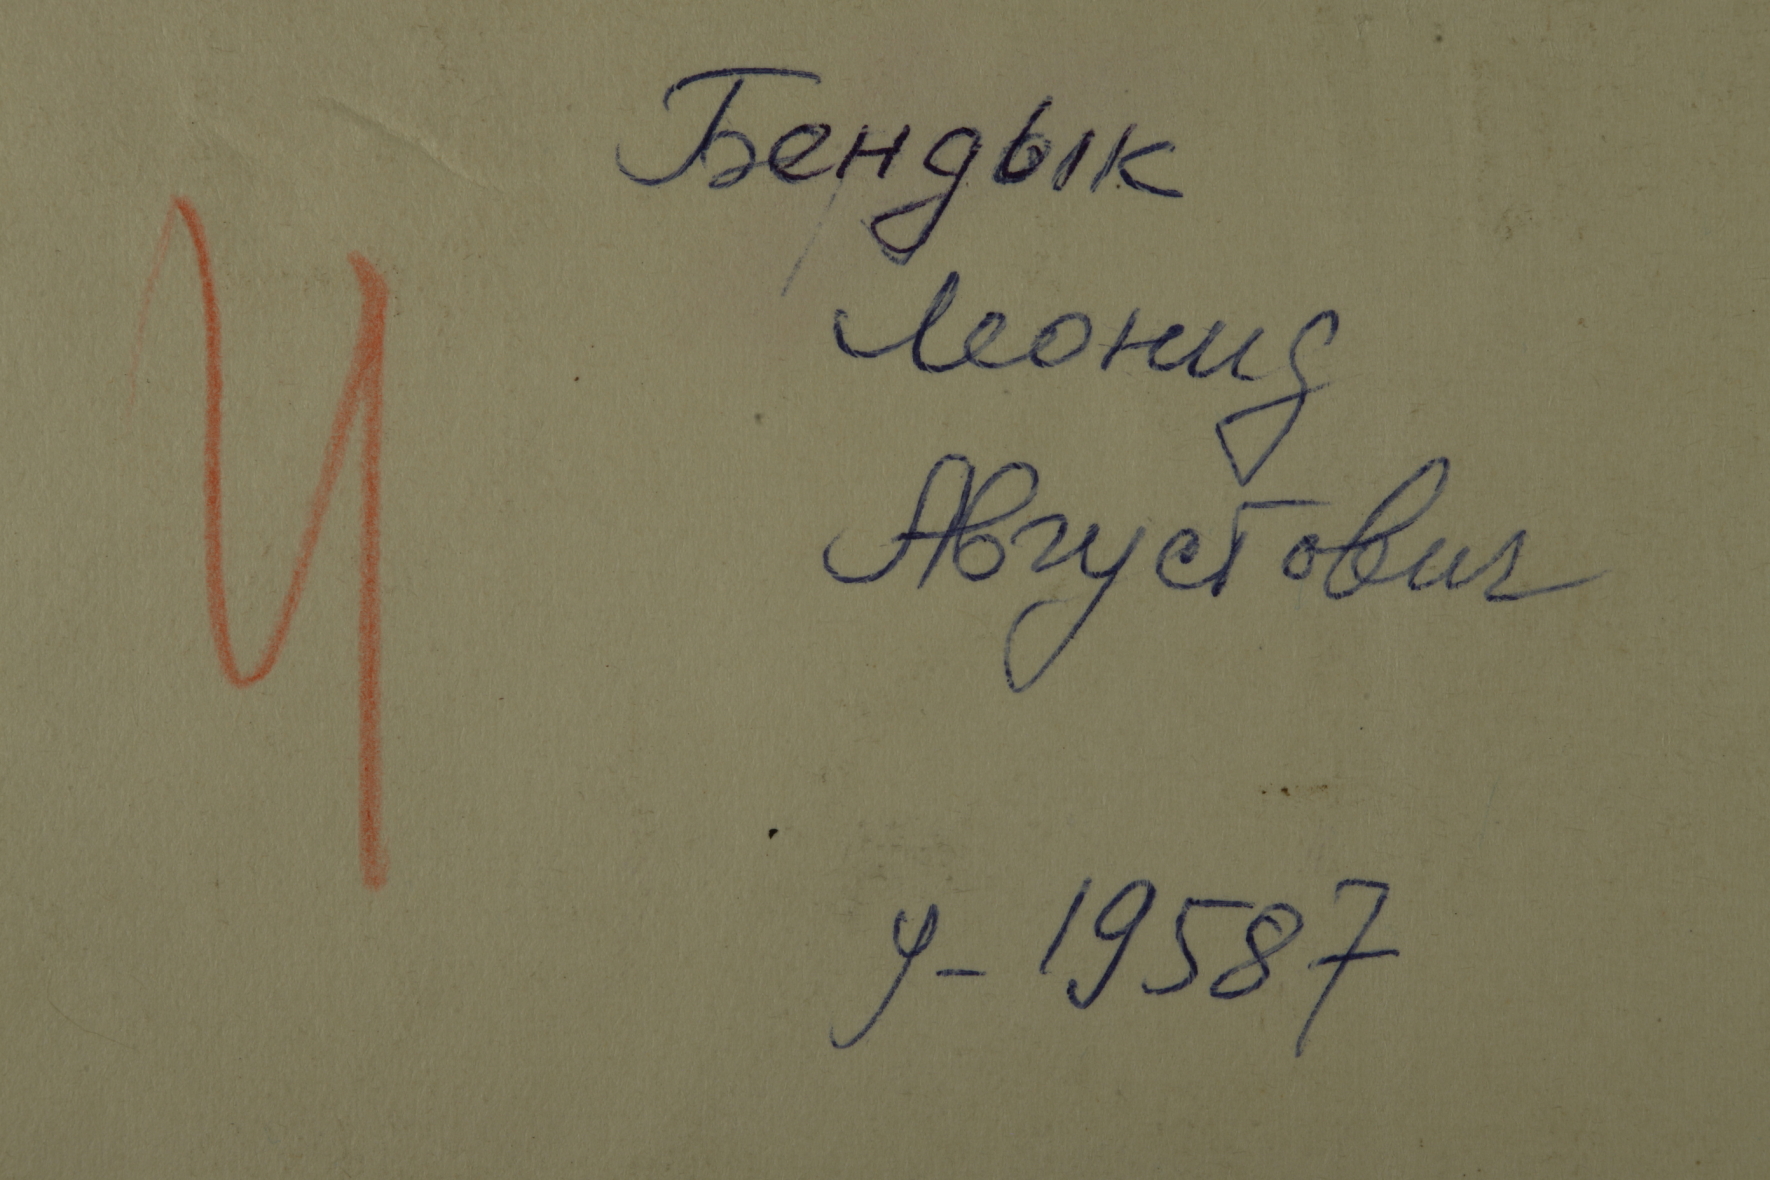 Бендык
Леонид
Августович
Ч
у-19587